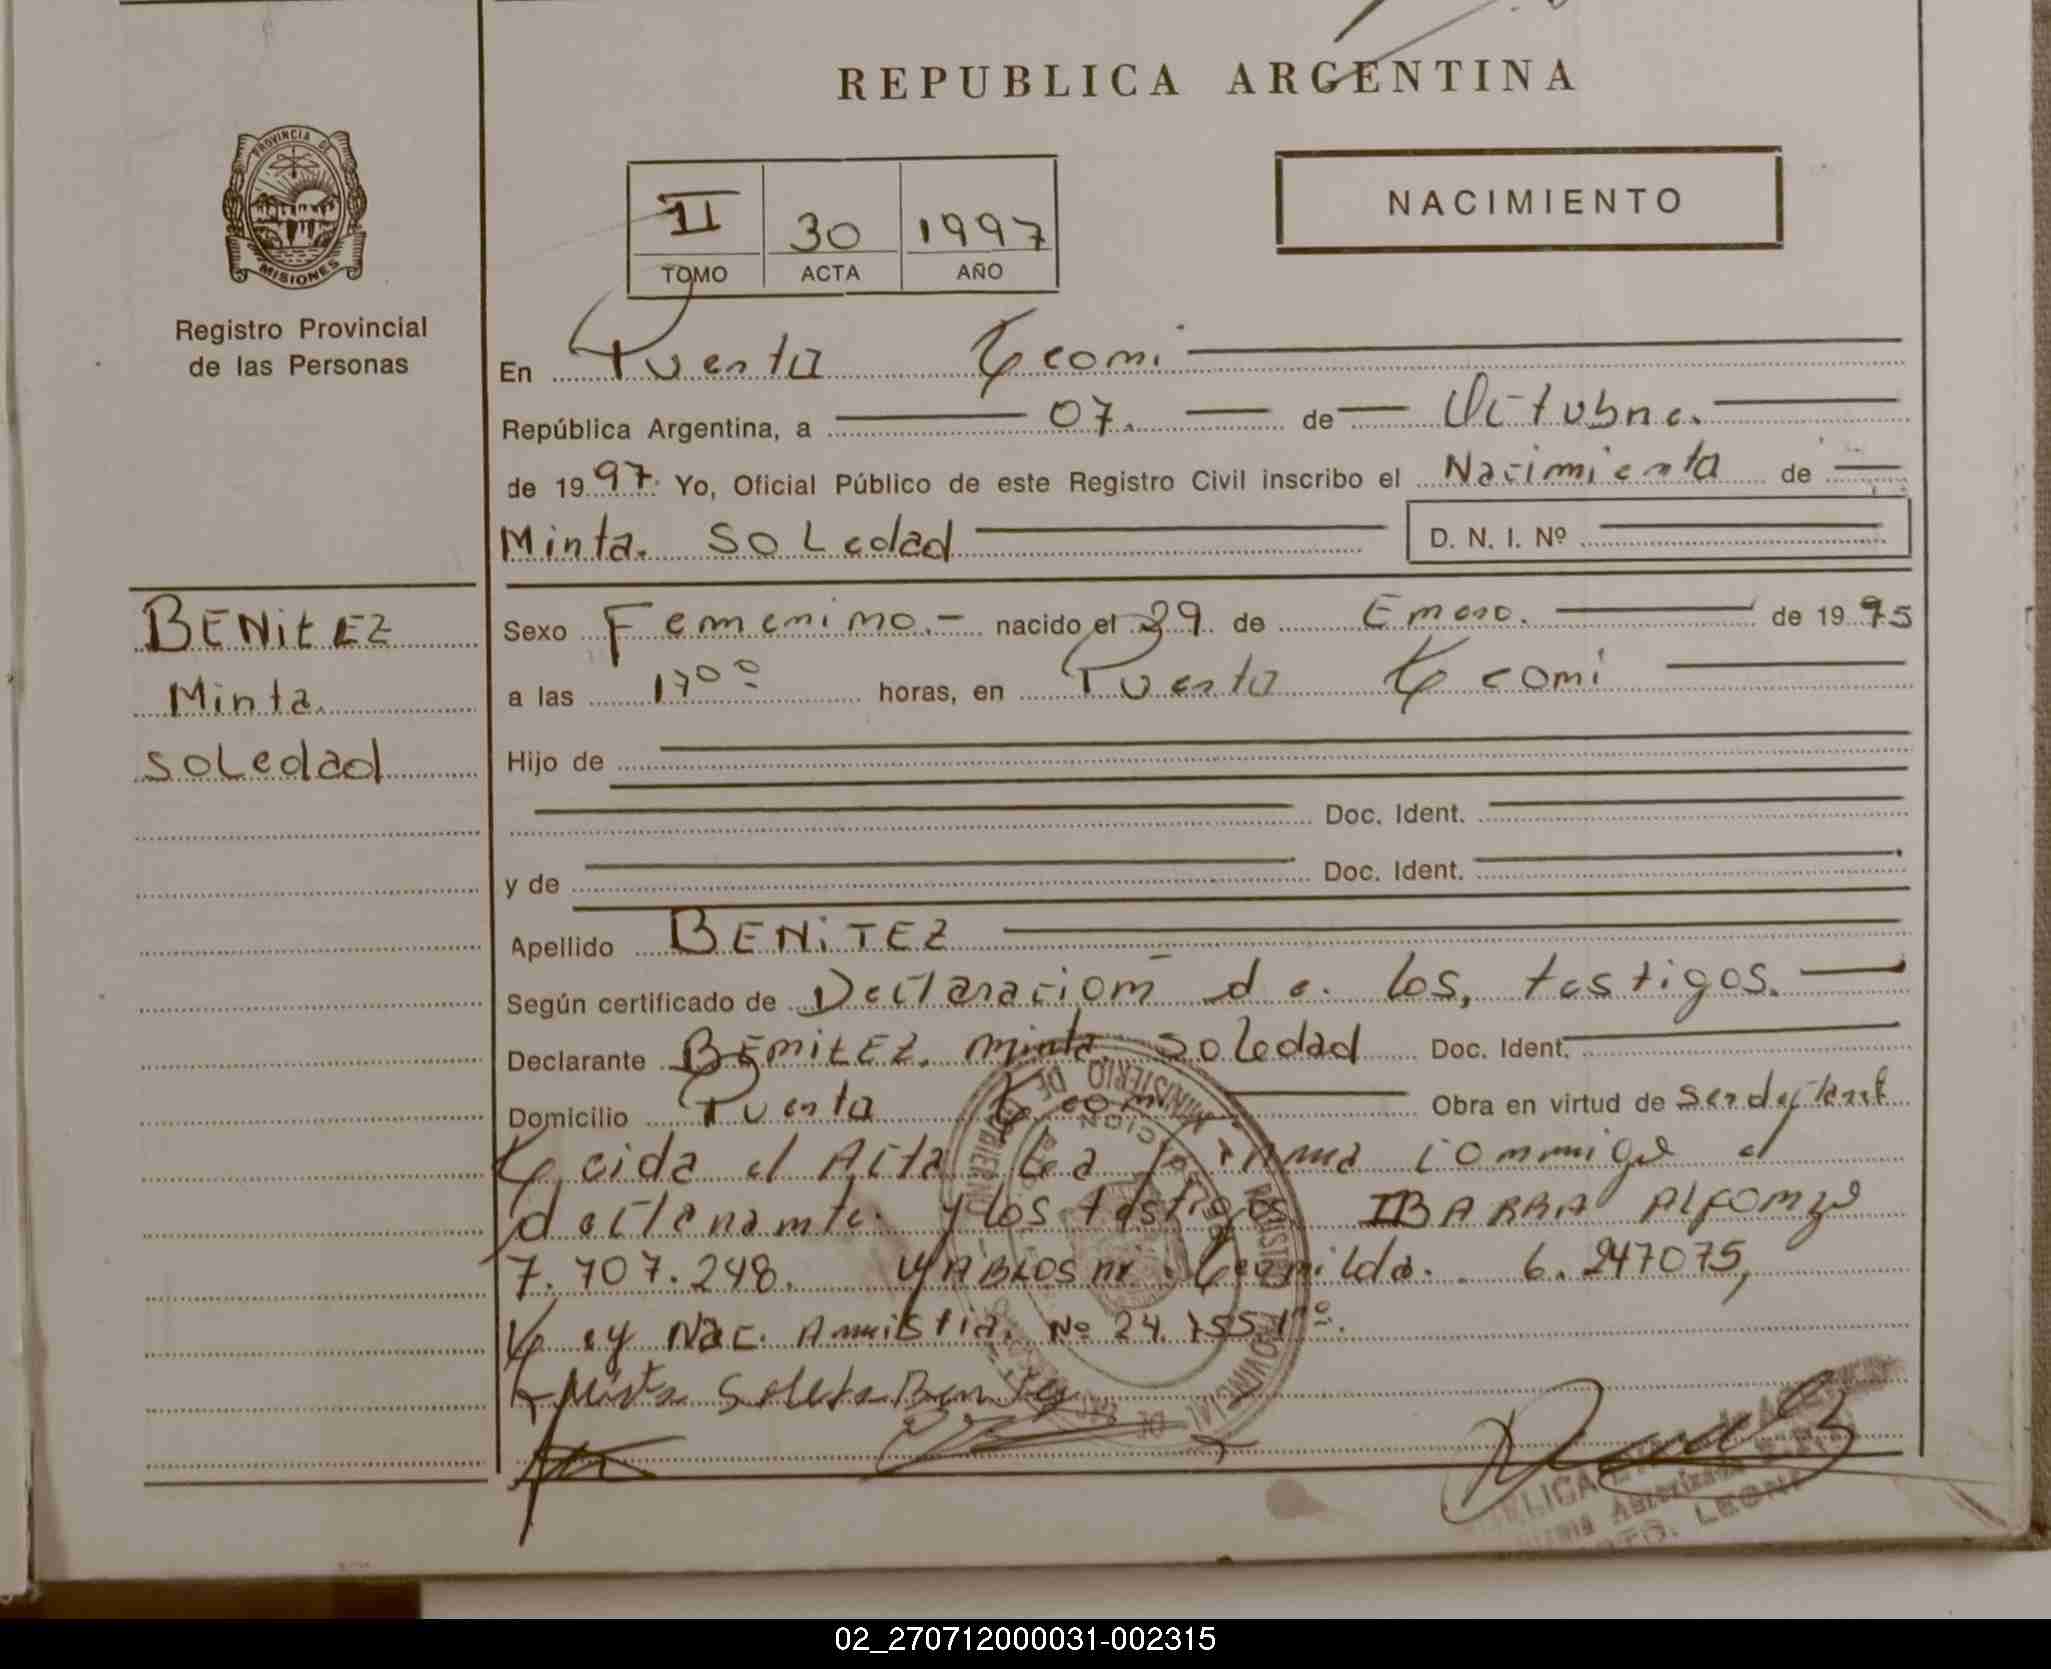 REPUBLICA ARGENTINA
PROVINCIA DE
MISIONES
Registro Provincial
de las Personas
II 30 1997
TOMO ACTA AÑO
NACIMIENTO
En Puerto Leoni
República Argentina, a 07. de Octubre.
de 1997. Yo, Oficial Público de este Registro Civil inscribo el Nacimiento de
Minta. SOLedad D. N. I. Nº
BENitEZ
Minta.
soLedad
Sexo Femenino.- nacido el 29 de Enero. de 1975
a las 17°° horas, en Puerto Leoni
Hijo de
Doc. Ident.
y de Doc. Ident.
Apellido BENiTEZ
Según certificado de Declaración de. los, testigos.
Declarante BENitEZ. minta. soledad Doc. Ident.
Domicilio Puerto Leoni Obra en virtud de ser declarante
Leida el Acta La firma conmigo el
declarante. y los testigos. IBARRA ALFONZO
7.707.248. 6.247075,
Ley Nac. Amnistia. Nº 24.755.
MINISTERIO DE
PTO. LEONI
02_270712000031-002315